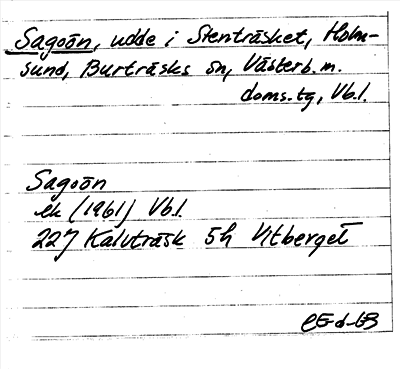 Sagoön, udde i Stenträsket, Holm-
sund, Burträsks sn, Västerb. m.
doms.tg, Vb.l.
Sagoön
ek (1961) Vb.l.
22J Kalvträsk 5h Vitberget